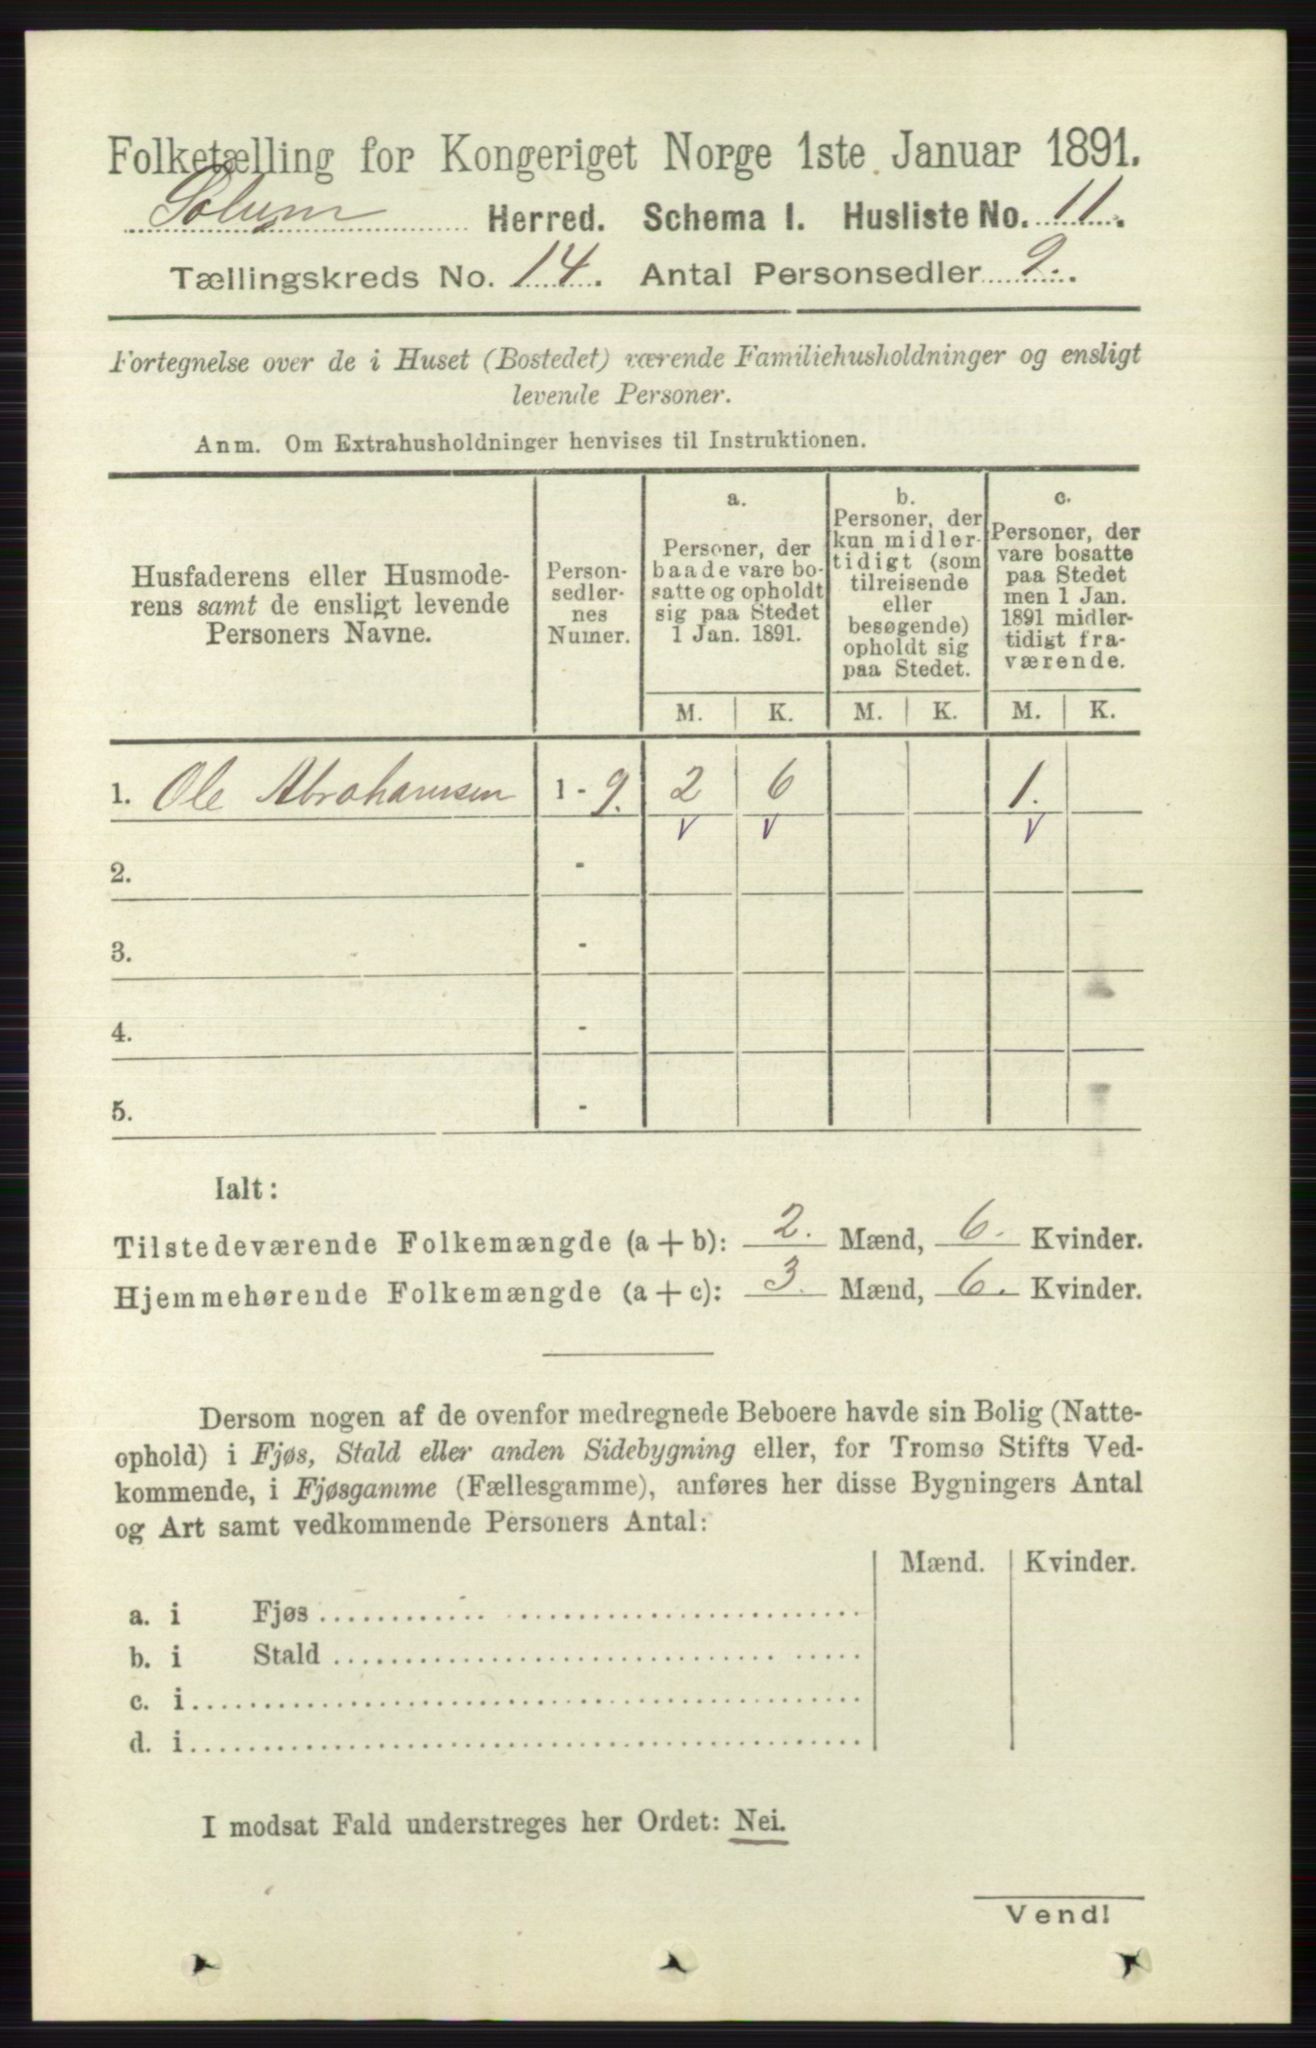 Folketælling for Kongeriget Norge 1ste Januar 1891.
Solum Herred. Schema I. Husliste No. 11.
Tællingskreds No. 14. Antal Personsedler 9.
Fortegnelse over de i Huset (Bostedet) værende Familiehusholdninger og ensligt
levende Personer.
Anm. Om Extrahusholdninger henvises til Instruktionen.
Husfaderens eller Husmode-
rens samt de ensligt levende
Personers Navne.
Person-
sedler-
nes
Numer.
a.
Personer, der
baade vare bo-
satte og opholdt
sig paa Stedet
1 Jan. 1891.
b.
Personer, der
kun midler-
tidigt (som
tilreisende
eller
besøgende)
opholdt sig
paa Stedet.
c.
Personer, der
vare bosatte
paa Stedet
men 1 Jan.
1891 midler-
tidigt fra-
værende.
M. K. M. K. M. K.
1. Ole Abrahamsen 1 - 9. 2 6 1.
v v v
2. -
3. -
4. -
5. -
Ialt:
Tilstedeværende Folkemængde (a + b): 2. Mænd, 6. Kvinder.
Hjemmehørende Folkemængde (a + c): 3. Mænd, 6. Kvinder.
Dersom nogen af de ovenfor medregnede Beboere havde sin Bolig (Natte-
ophold) i Fjøs, Stald eller anden Sidebygning eller, for Tromsø Stifts Ved-
kommende, i Fjøsgamme (Fællesgamme), anføres her disse Bygningers Antal
og Art samt vedkommende Personers Antal:
Mænd. Kvinder.
a. i Fjøs
b. i Stald
c. i
d. i
I modsat Fald understreges her Ordet: Nei.
Vend!